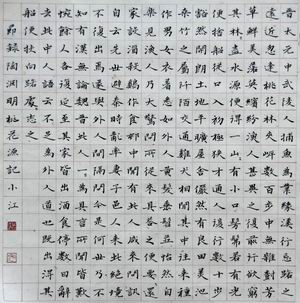 晉太元中武陵人捕魚為業緣溪行忘路之
遠近忽逢桃花林夾岸數百步中無雜樹芳
草鮮美落英繽紛漁人甚異之復前行欲窮
其林盡水源便得一山有小口髣髴若有光
便舍船從口入初極狹纔通人復行數十步
豁然開朗土地平曠屋舍儼然有良田美池
桑竹之屬阡陌交通雞犬相聞其中往來種
作男女衣著悉如外人黃髮垂髫並怡然自
樂見漁人乃大驚問所從來具答之便要還
家設酒殺雞作食村中聞有此人咸來問訊
自云先世避秦時亂率妻子邑人來此絕境
不復出焉遂與外人間隔問今是何世乃不
知有漢無論魏晉此人一一為具言所聞皆歎
惋餘人各復延至其家皆出酒食停數日辭
去此中人語云不足為外人道也既出得其
船便扶向路處處志之
節錄陶淵明桃花源記小江